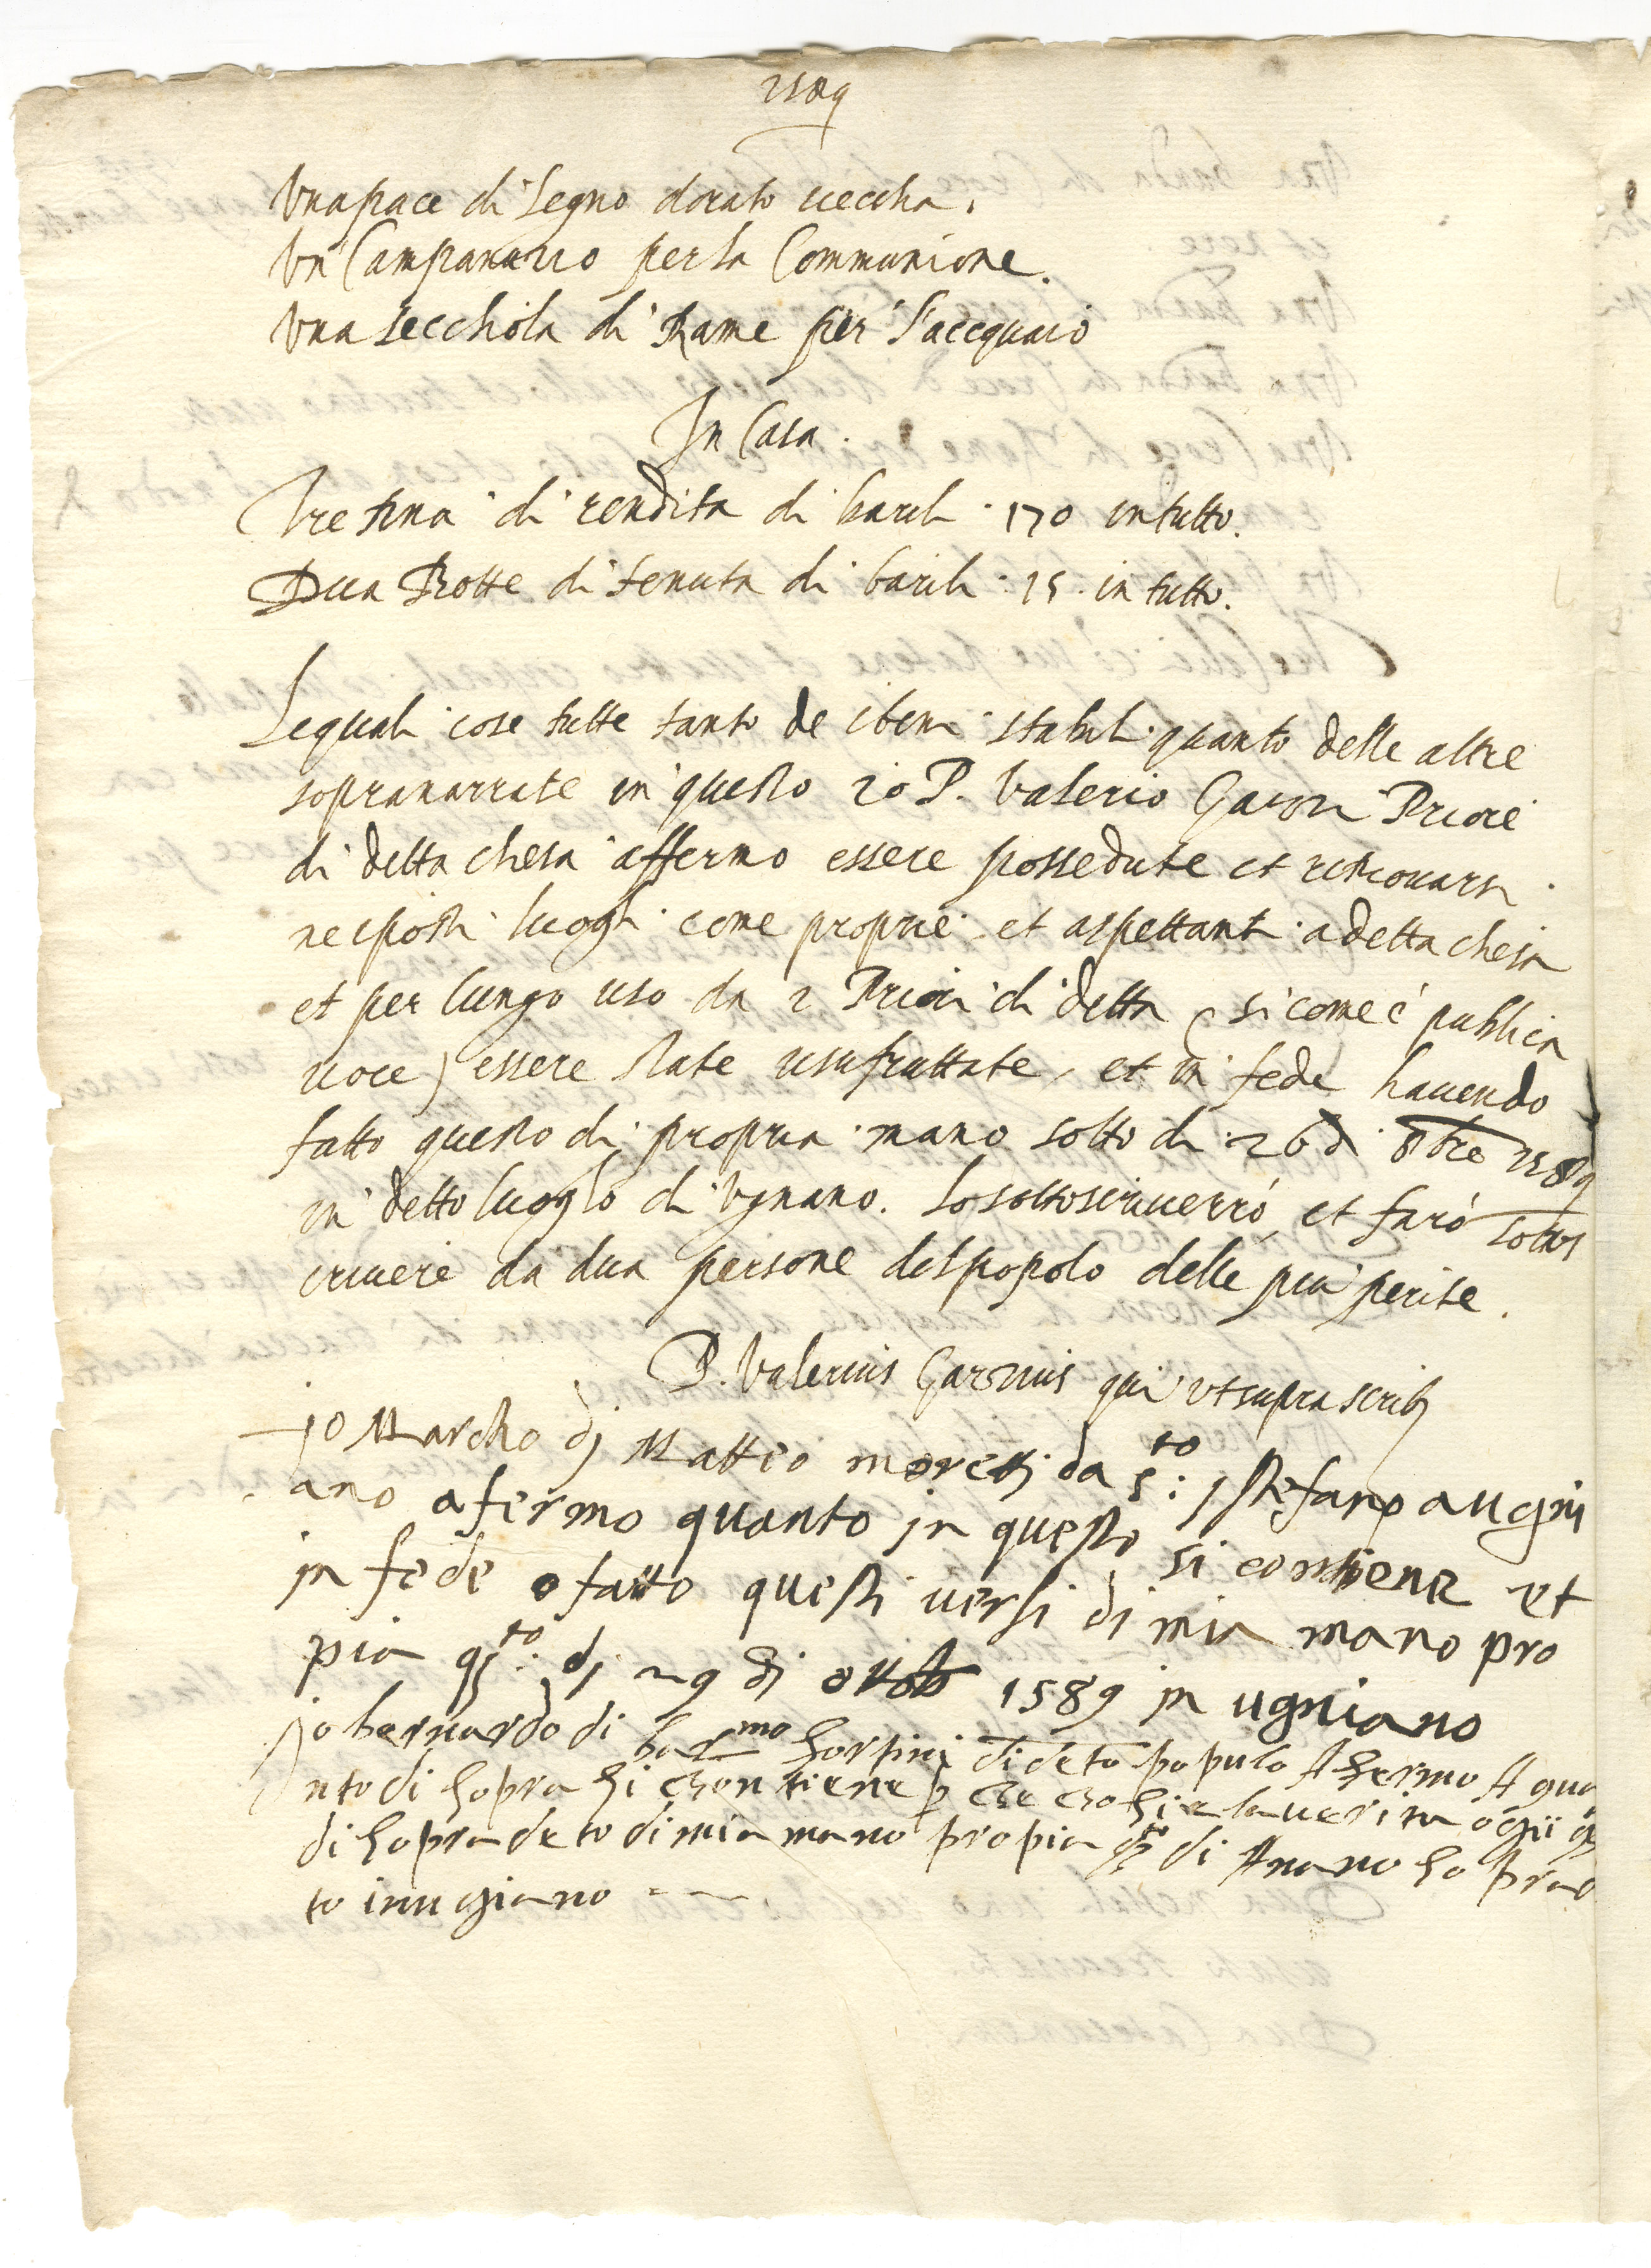 1589
Una pace di legno dorato vecchia.
Un Campanuzzo per la Communione.
Una secchiola di Rame per l'accquaio
In Casa.
Tre tina di rendita di barili · 170 in tutto.
Dua Botte di tenuta di barili · 15 · in tutto.
Lequali cose tutte tanto de i beni stabili quanto delle altre
sopranarrate in questo io P. Valerio Priore
di detta chiesa affermo essere possedute et ritrovarsi
ne i posti luoghi come proprie et aspettanti a detta chiesa
et per lungo uso da i Priori di detta (si come è publica
voce) essere state usufruttate, et in fede havendo
fatto questo di propria mano sotto di 26 di 8bre 1589
in detto luogho di Ugnano. Lo sottoscriverrò, et farò sottos
crivere da dua persone del popolo delle più perite.
P. Valerius qui ut supra scripsi
jo Marcho dj Matteo moretti da s:to stefano a ugni
ano afermo quanto jn questo si contiene et
jn fede o fatto questi versi dj mia mano pro
pia dj 29 dj ottob 1589 jn ugniano
jo bernardo di bar.mo di deto populo Afermo A qua
nto di sopra si chontiene p che chosi e la verita
di sopra deto di mia mano propia di Anno soprad
to inugiano